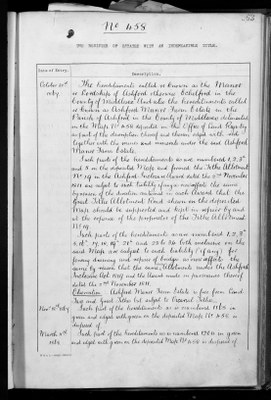 No 458
THE REGISTER OF ESTATES WITH AN INDEFEASIBLE TITLE.
Date of Entry.
Description.
October
The hereditaments called or known as the Manor
or Lordship of Ashford otherwise Echelford in the
County of Middlesex And also the hereditaments called
or known as Ashford Manor Farm Estate in the
Parish of Ashford in the County of Middlesex delineated
on the Map No 458 deposited in the Office of Land Registry
as part of the description thereof and thereon edged with
together with the mines and minerals under the said Ashford
Manor Farm Estate.
Such parts of the hereditaments as are numbered 1, 2, 3
and on the deposited Map and formed the Tithe Allotment
No 19 in the Ashford Inclosure Award dated the 5th November
1811 are subject to such liability (if any) as regards the
expression of the direction contained in such Award that the
said Tithe Allotment shown on the deposited
Map should be supported and kept in repair by and
at the expense of the proprietor of the Tithe Allotment
No 19.
Such parts of the hereditaments as are numbered 1, 2, 3
on the
said Map are subject to such liability (if any) for
fencing draining and repair of hedges as may affect the
same by reason that the same Allotments under the Ashford
Inclosure Act 1809 and the Award made in pursuance thereof
dated the 5th November 1811.
Observation Ashford Manor Farm Estate is free from Land
Tax and Great Tithes but subject to Vicarial Tithes.
Such part of the hereditaments as is numbered in
green and edged with green on the deposited Map No 458 is
disposed of.
March
Such part of the hereditaments as is numbered in green
and edged with green on the deposited Map No 458 is disposed of